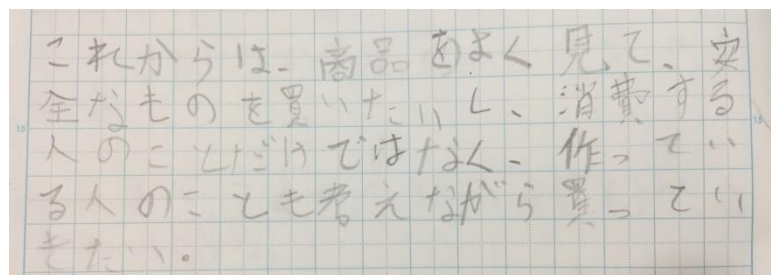 これからは、商品をよく見て、安
全なものを買いたいし、消費する
人のことだけではなく、作ってい
る人のことも考えながら買ってい
きたい。
15
15